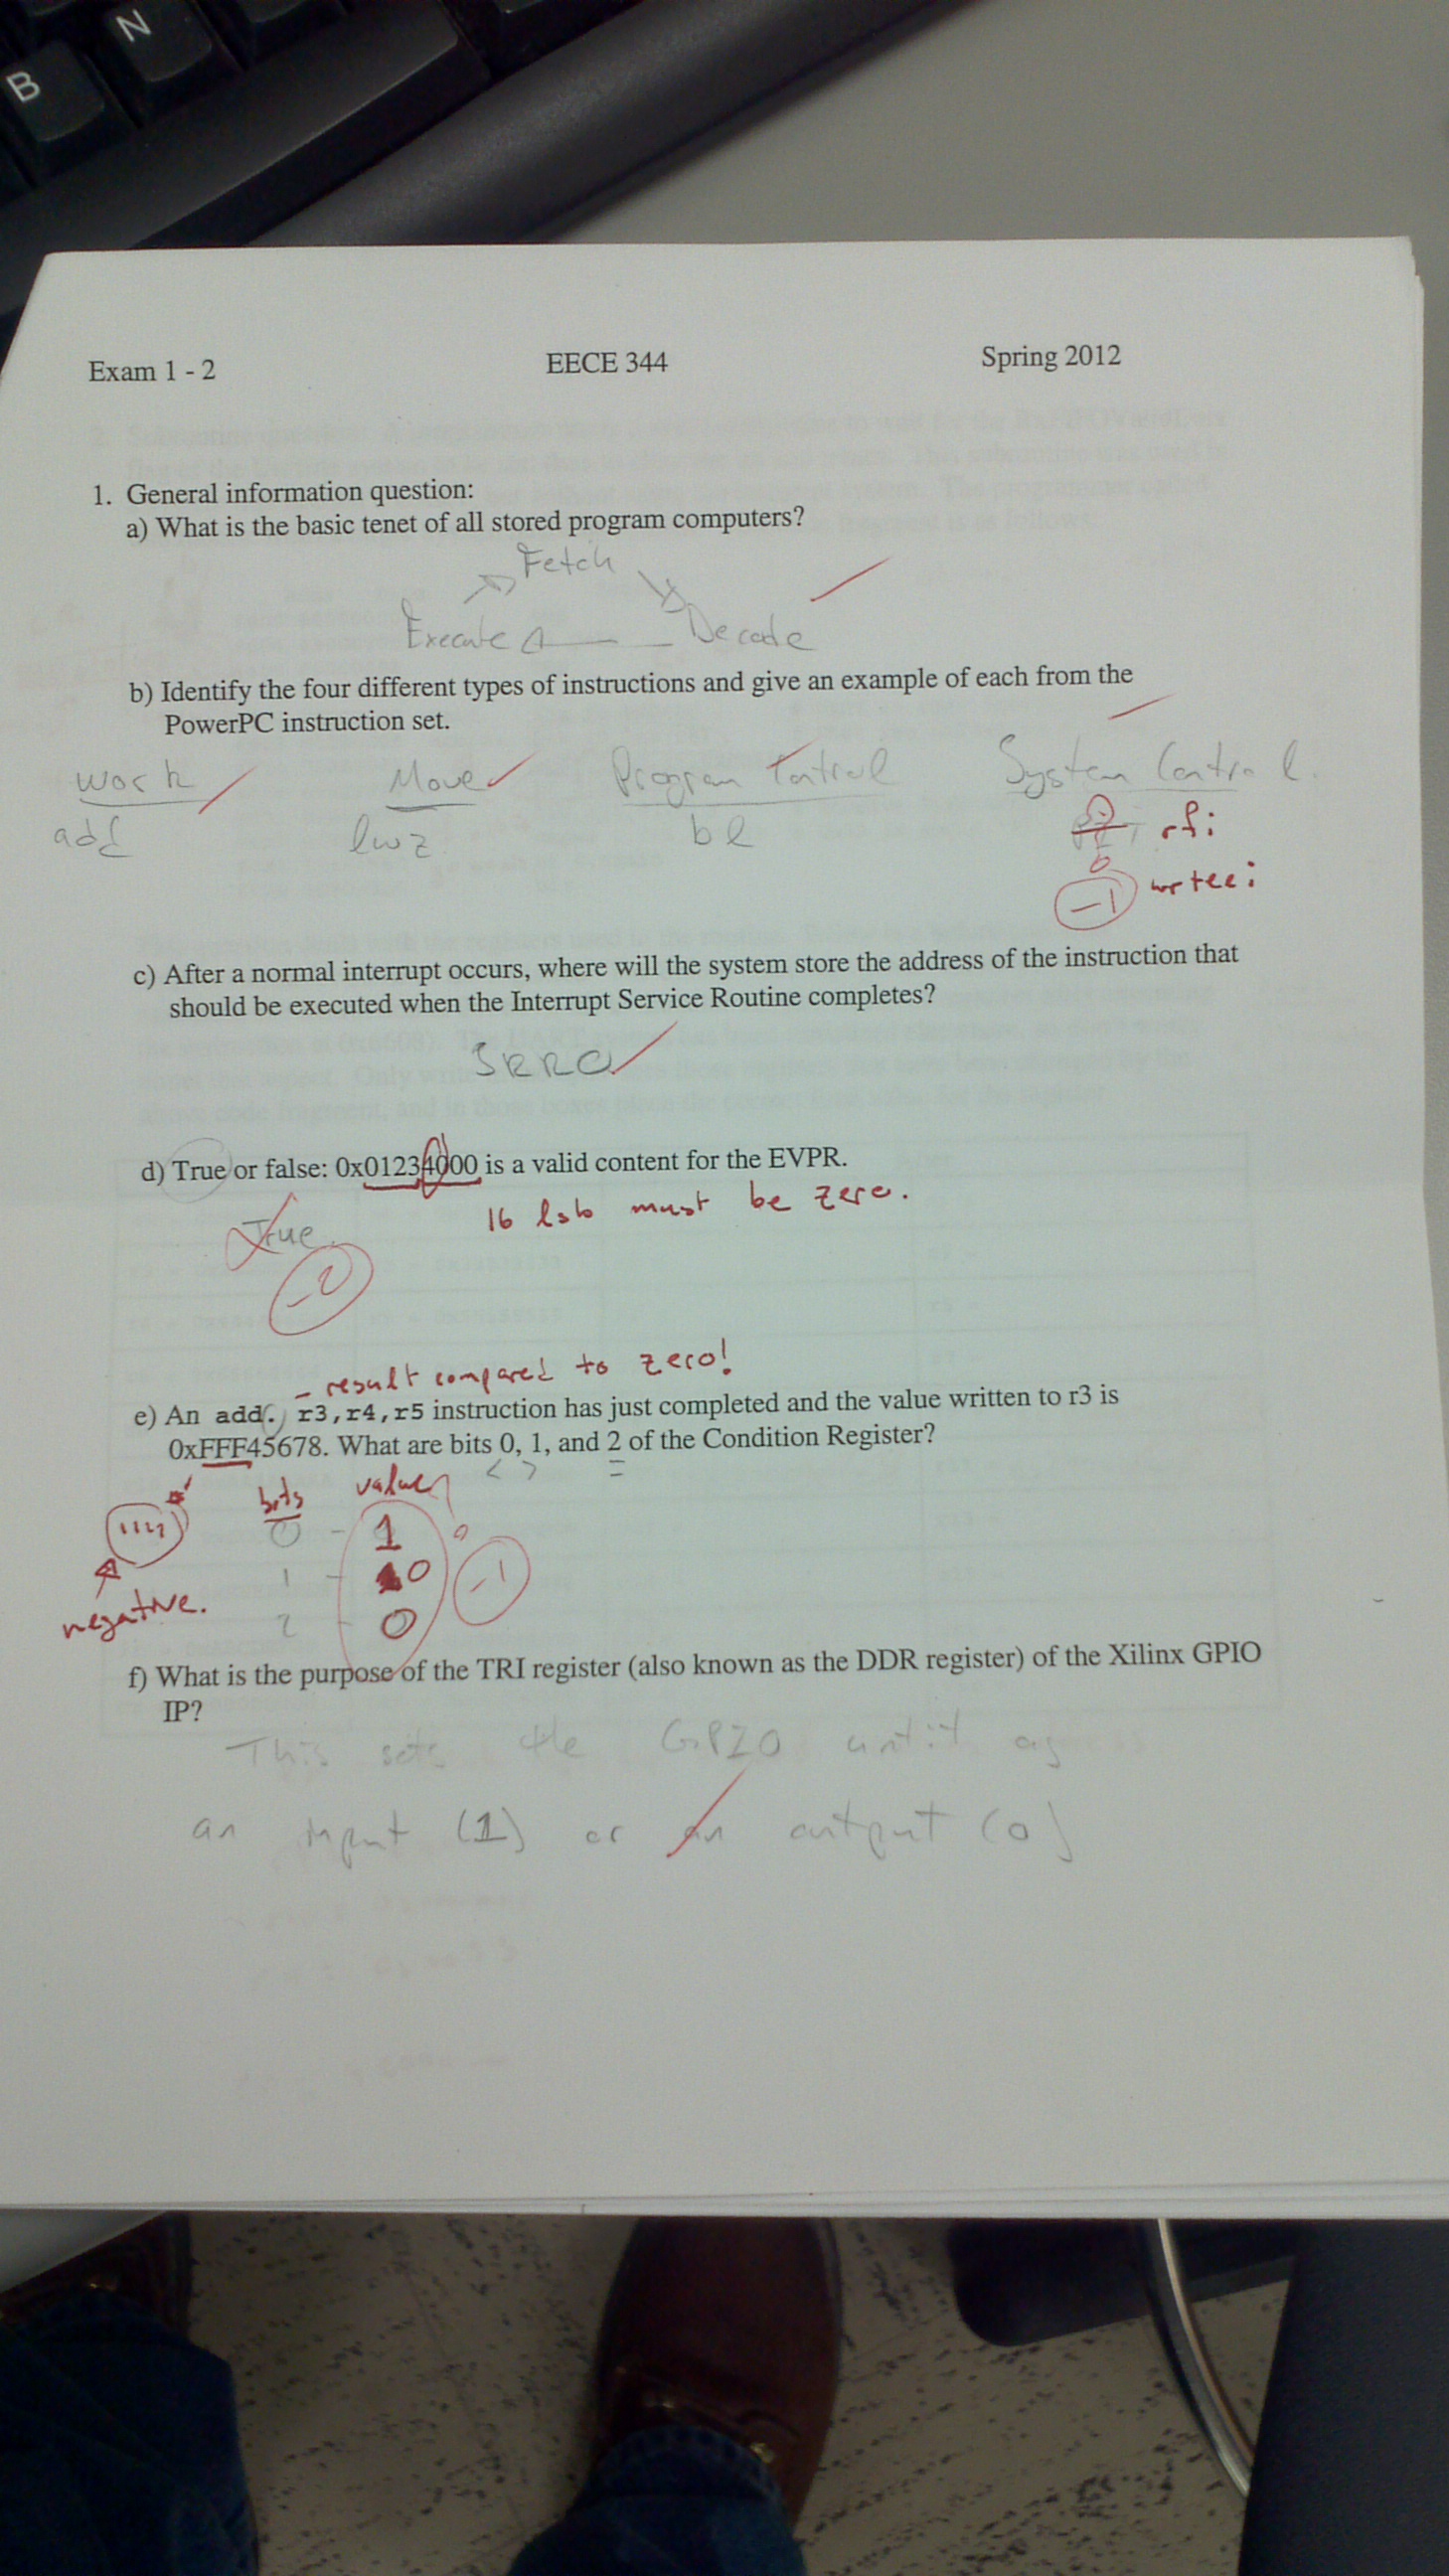 B N
Exam 1 - 2 EECE 344 Spring 2012
1. General information question:
a) What is the basic tenet of all stored program computers?
Fetch
Execute Decode
b) Identify the four different types of instructions and give an example of each from the
PowerPC instruction set.
Work Move Program Control System Control
add lwz bl rfi
-1 wrteei
c) After a normal interrupt occurs, where will the system store the address of the instruction that
should be executed when the Interrupt Service Routine completes?
SRR0
d) True or false: 0x01234000 is a valid content for the EVPR.
16 lsb must be zero.
True
-2
- result compared to zero!
e) An add. r3,r4,r5 instruction has just completed and the value written to r3 is
0xFFF45678. What are bits 0, 1, and 2 of the Condition Register?
< > =
bits values
1111 0 - 1
1 - 0 -1
negative. 2 - 0
f) What is the purpose of the TRI register (also known as the DDR register) of the Xilinx GPIO
IP?
This sets the GPIO as
an input (1) or an output (0)